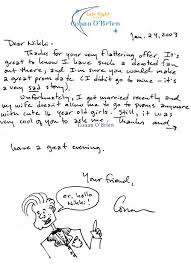 Late Night
Conan O'Brien
Jan. 24, 2003
Dear Nikki:
Thanks for your very flattering offer. It's
great to know I have such a devoted fan
out there, and I'm sure you would make
a great prom date. (I didn't go to mine - it's
a very sad story).
Unfortunately, I got married recently and my
wife doesn't allow me to go to proms anymore
with cute 16 year old girls. Still, it was
very cool of you to ask me. Thanks and
Conan O'Brien
have a great evening.
Your friend,
er, hello
Nikki!
Conan